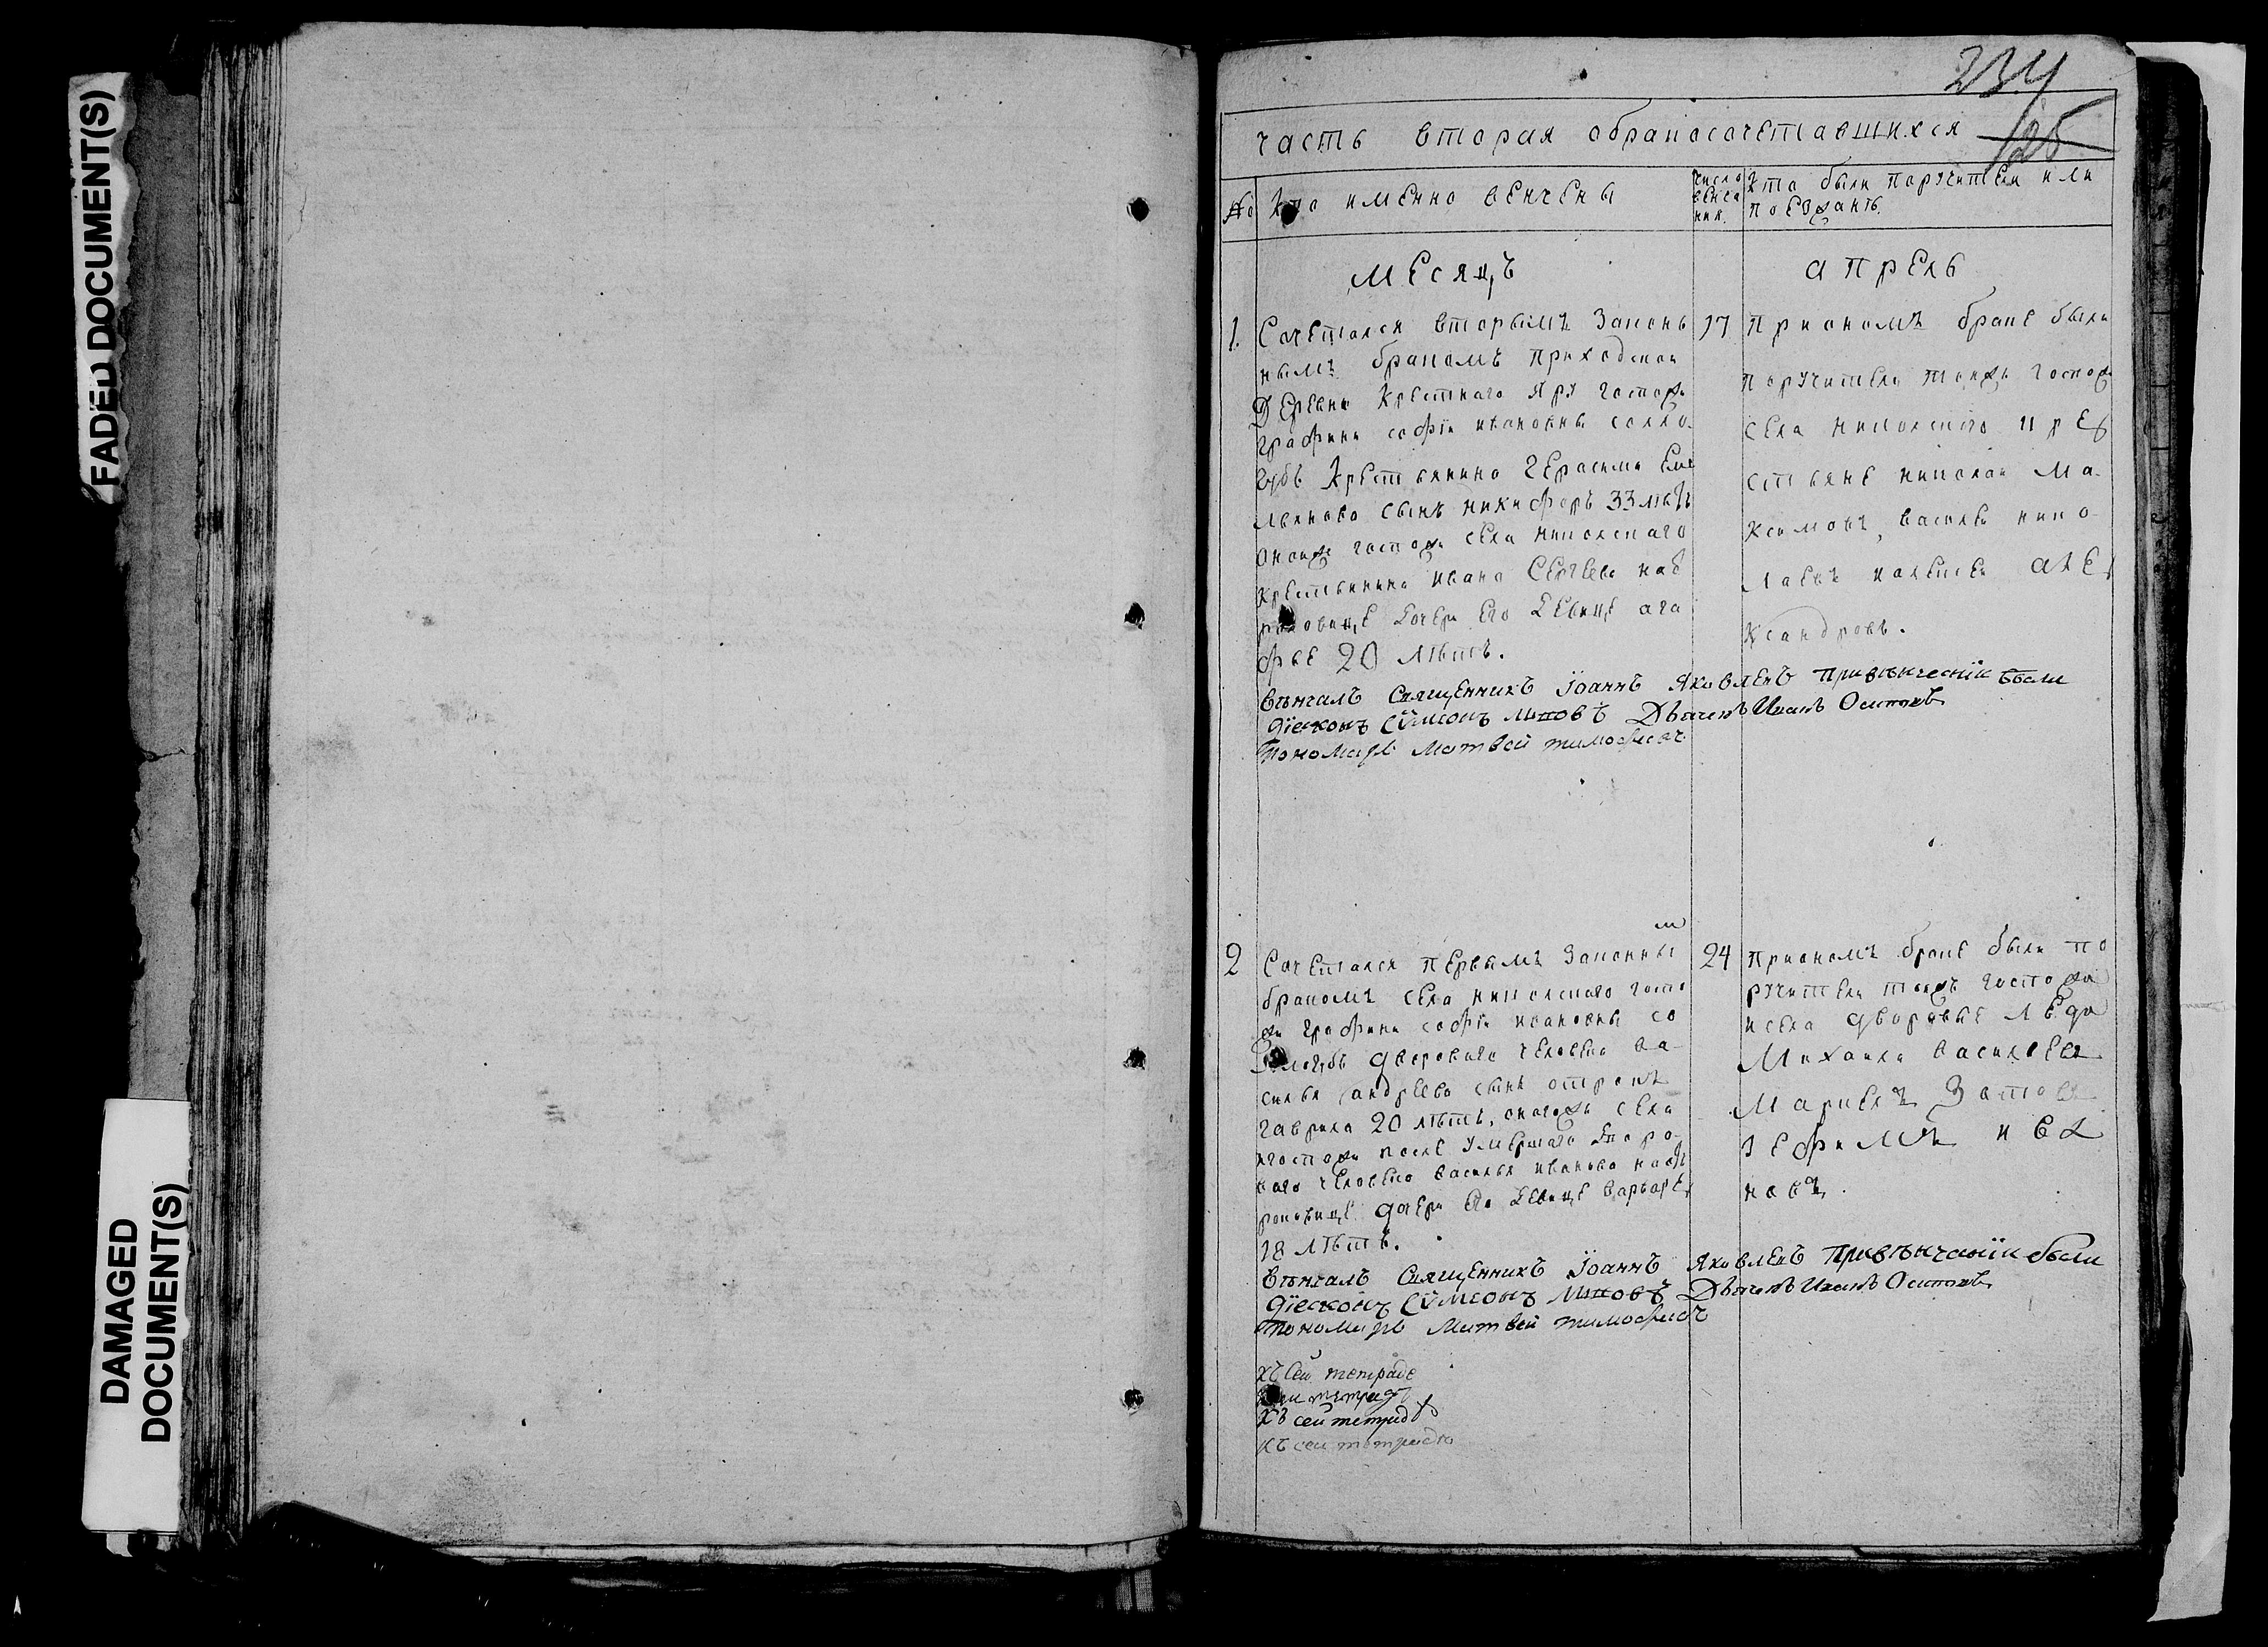 FADED DOCUMENT(S)
DAMAGED
DOCUMENT(S)
234
125
часть вторая обракосочетавшихся
№ Кто именно венчены
число венча ния. Кто были поручители или
поезжанъ.
месяцъ апрель
1. Сочетался вторымъ Закон
нымъ бракомъ приходской
Деревни Крестнаго Яру госпожи
графини софiи ивановны солло
губъ Крестьянина Герасима Еме
льянова сынъ никифоръ 33 летъ
оноиже госпожи села николскаго
крестьянина ивана Сергеева наб
раковице дочери его девице ага
фье 20 летъ.
17 Приономъ браке были
поручители тоижъ госпож
села николскаго кре
стьяне николаи Ма
ксимовъ, василеи нико
лаевъ иалексеи але
ксандровъ.
Венчалъ Священникъ Iоаннъ Яковлевъ Привенчанiи были
Дiаконъ Сѵмеонъ Дьячекъ Иванъ Осиповъ
Пономарь Матвей тимофеевъ
2 Сочетался первымъ Законны
м
бракомъ села николскаго госпо
жи графини софiи ивановны со
ллогубъ двороваго человека ва
силья андреева сынъ отрокъ
гаврила 20 летъ, оногожъ села
игоспожи после умершаго дворо
ваго человека василья иванова наб
раковице дочери его девице варваре
18 летъ.
24 Приономъ браке были по
ручители тоижъ госпожи
исела дворовые люди
Михаила васильев
Маркелъ
ефимъ ива
новъ.
Венчалъ Священникъ Iоаннъ Яковлевъ Привенчанiи были
Дiаконъ Сѵмеонъ Дьячекъ Иванъ Осиповъ
Пономарь Матвей тимофеевъ
Къ сеи тетраде
сеи тетради
Къ сеи тетраде
Къ сеи тетраде